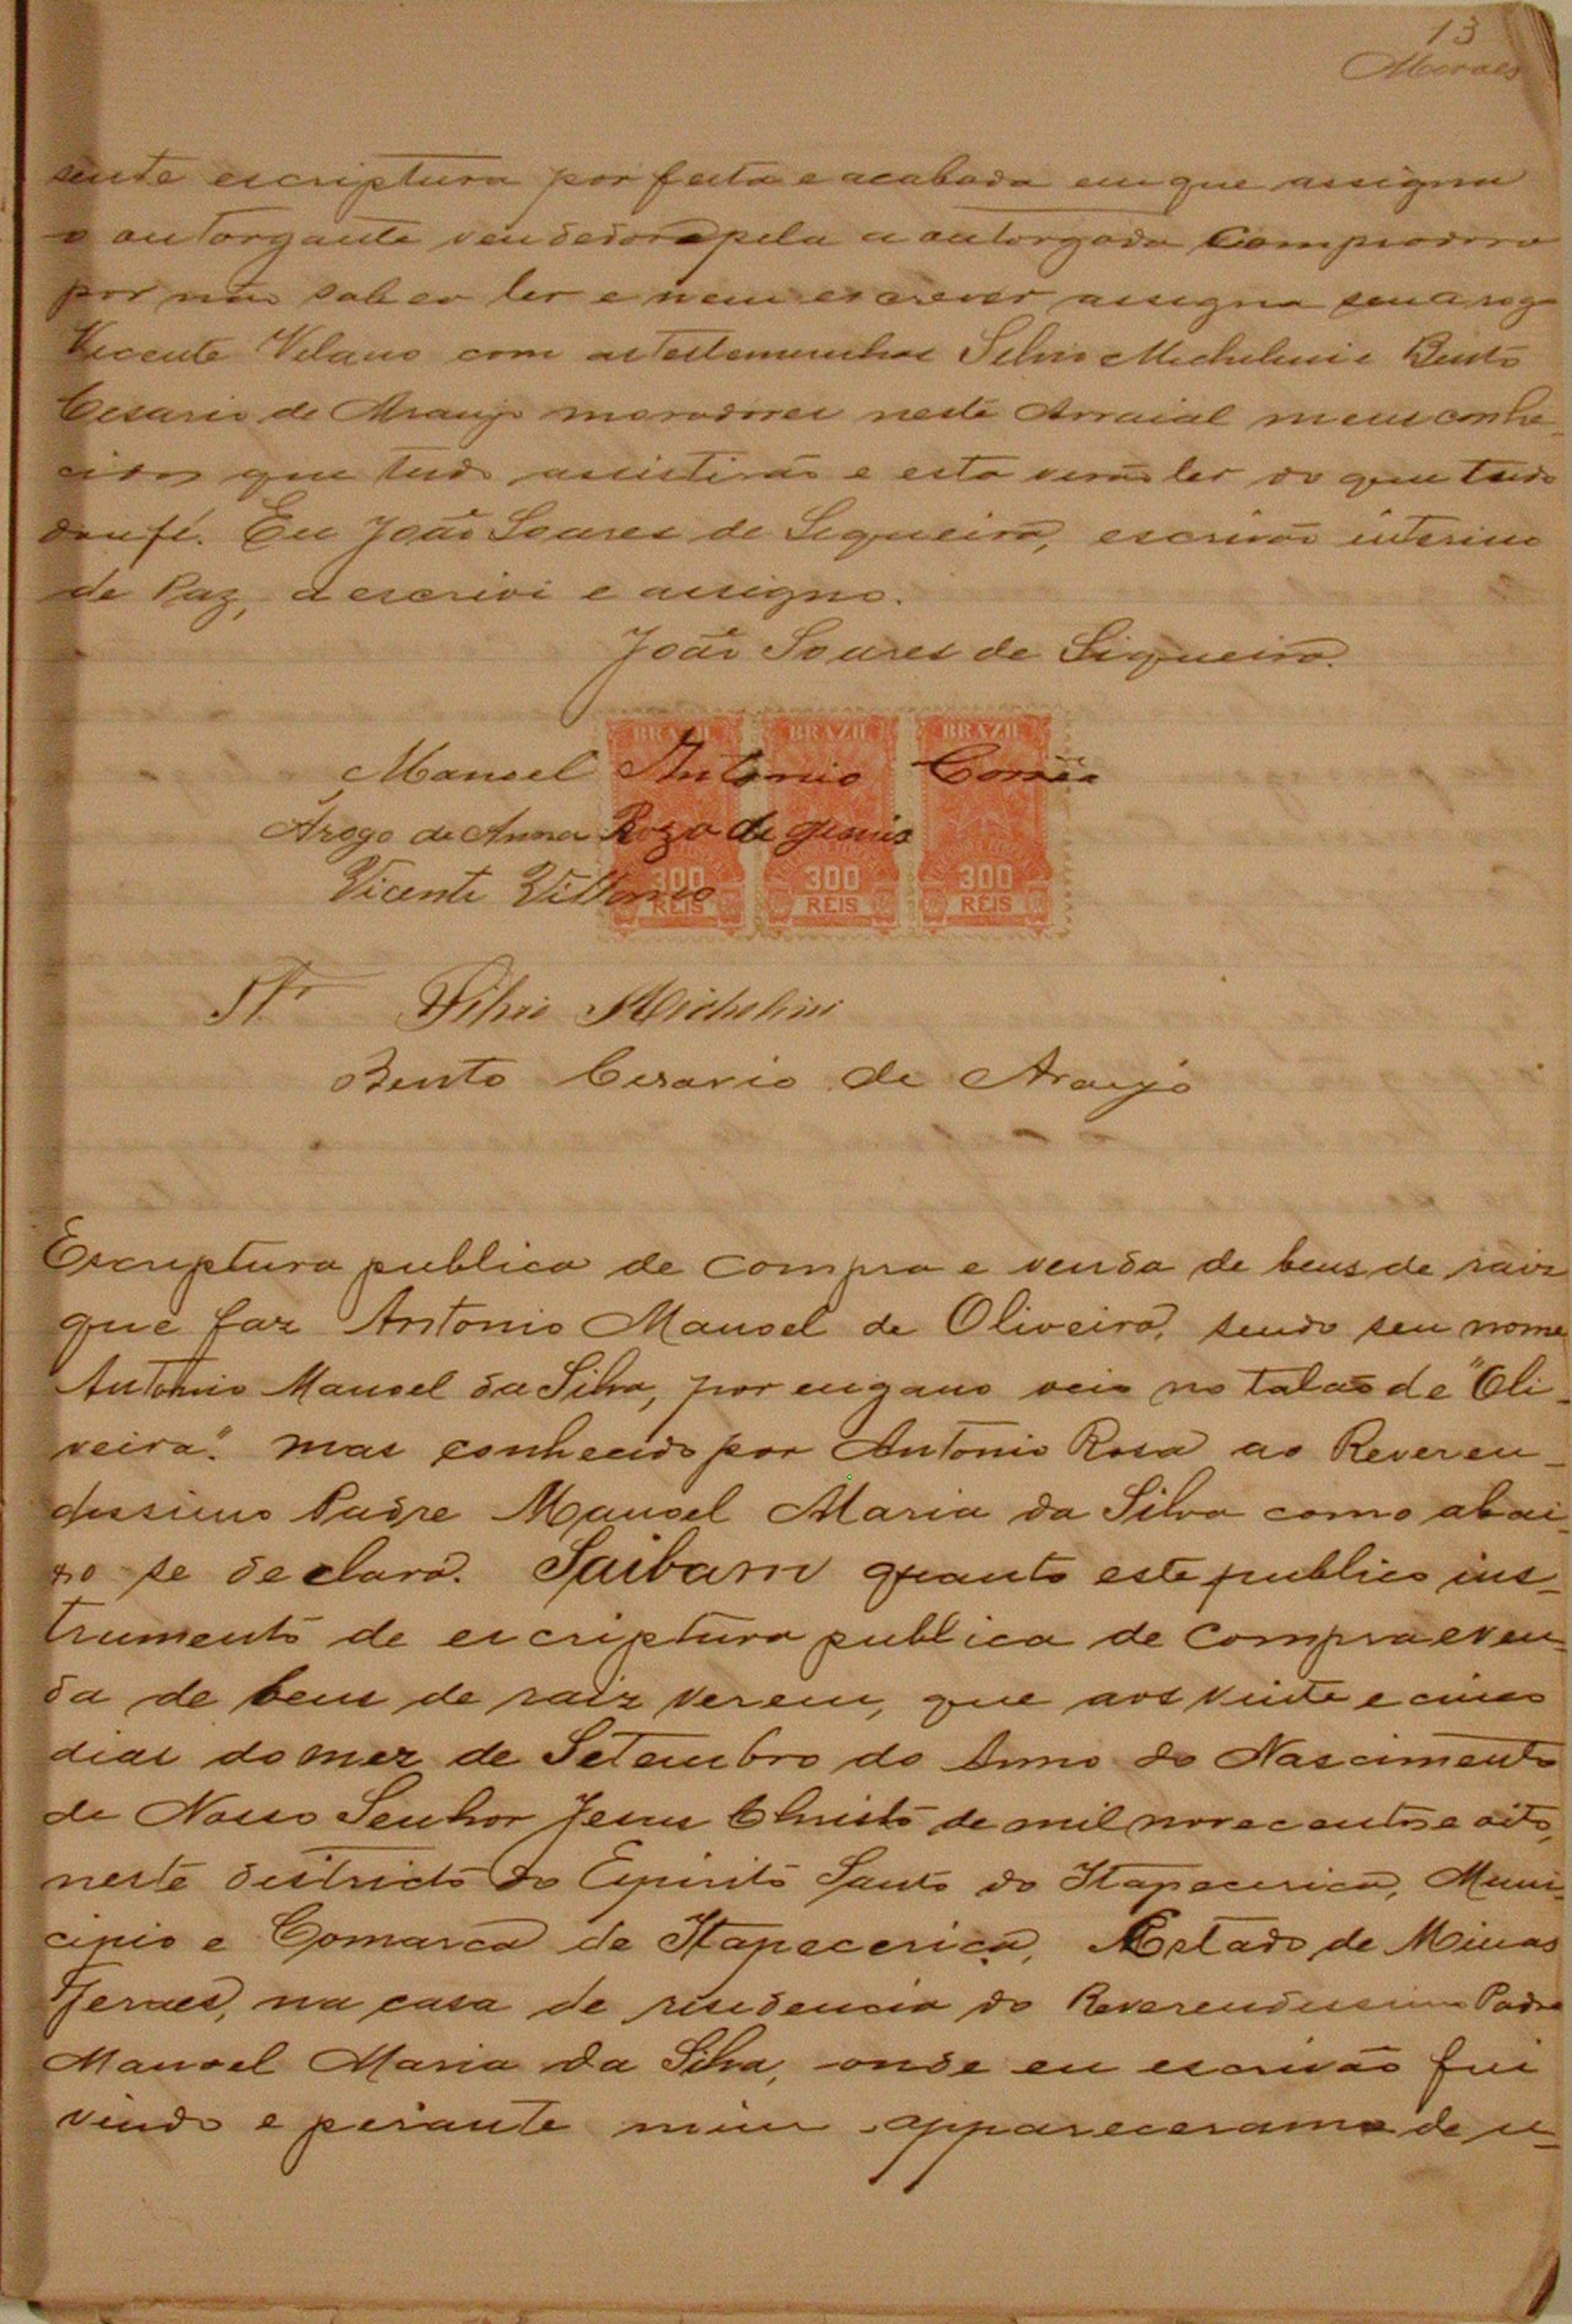 13
Moraes
sente escriptura por feita e acabada em que assigna
o outorgante vendedor e pela a outorgada Compradora
por não saber ler e nem escrever assigna seu a rogo
Vicente Vilano com as testemunhas Silvio Michelini e Bento
Cesario de Araujo moradores neste Arraial meus conhe-
cidos que tudo assistirão e esta virão ler do que tudo
dou fé. Eu João Soares de Siqueira, escrivão interino
de Paz, a escrivi e assigno.
João Soares de Siqueira.
BRAZIL BRAZIL BRAZIL
Manoel Antonio Corrêa
Arogo de Anna Roza de Jesus
Vicente
300 REIS 300 REIS 300 REIS
Silvio Michelini
Bento Cesario de Araujo
Escriptura publica de Compra e venda de bens de raiz
que faz Antonio Manoel de Oliveira, sendo seu nome
Antonio Manoel da Silva, por engano veio no talão de "Oli-
veira". mas conhecido por Antonio Rosa ao Reveren-
dissimo Padre Manoel Maria da Silva como abai-
xo se declara. Saibam quanto este publico ins-
trumento de escriptura publica de Compra e ven-
da de bens de raiz verem, que aos vinte e cinco
dias do mez de Setembro do Anno do Nascimento
de Nosso Senhor Jesus Christo de mil novecentos e oito,
neste districto do Espirito Santo do Itapecerica, Muni-
cipio e Comarca de Itapecerica, Estado de Minas
Geraes, na casa de residencia do Reverendissimo Padre
Manoel Maria da Silva, onde eu escrivão fui
vindo e perante mim appareceram de u-